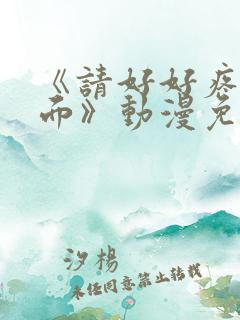 《請好好疼
而》動漫免
汐楊
未經同意禁止轉載